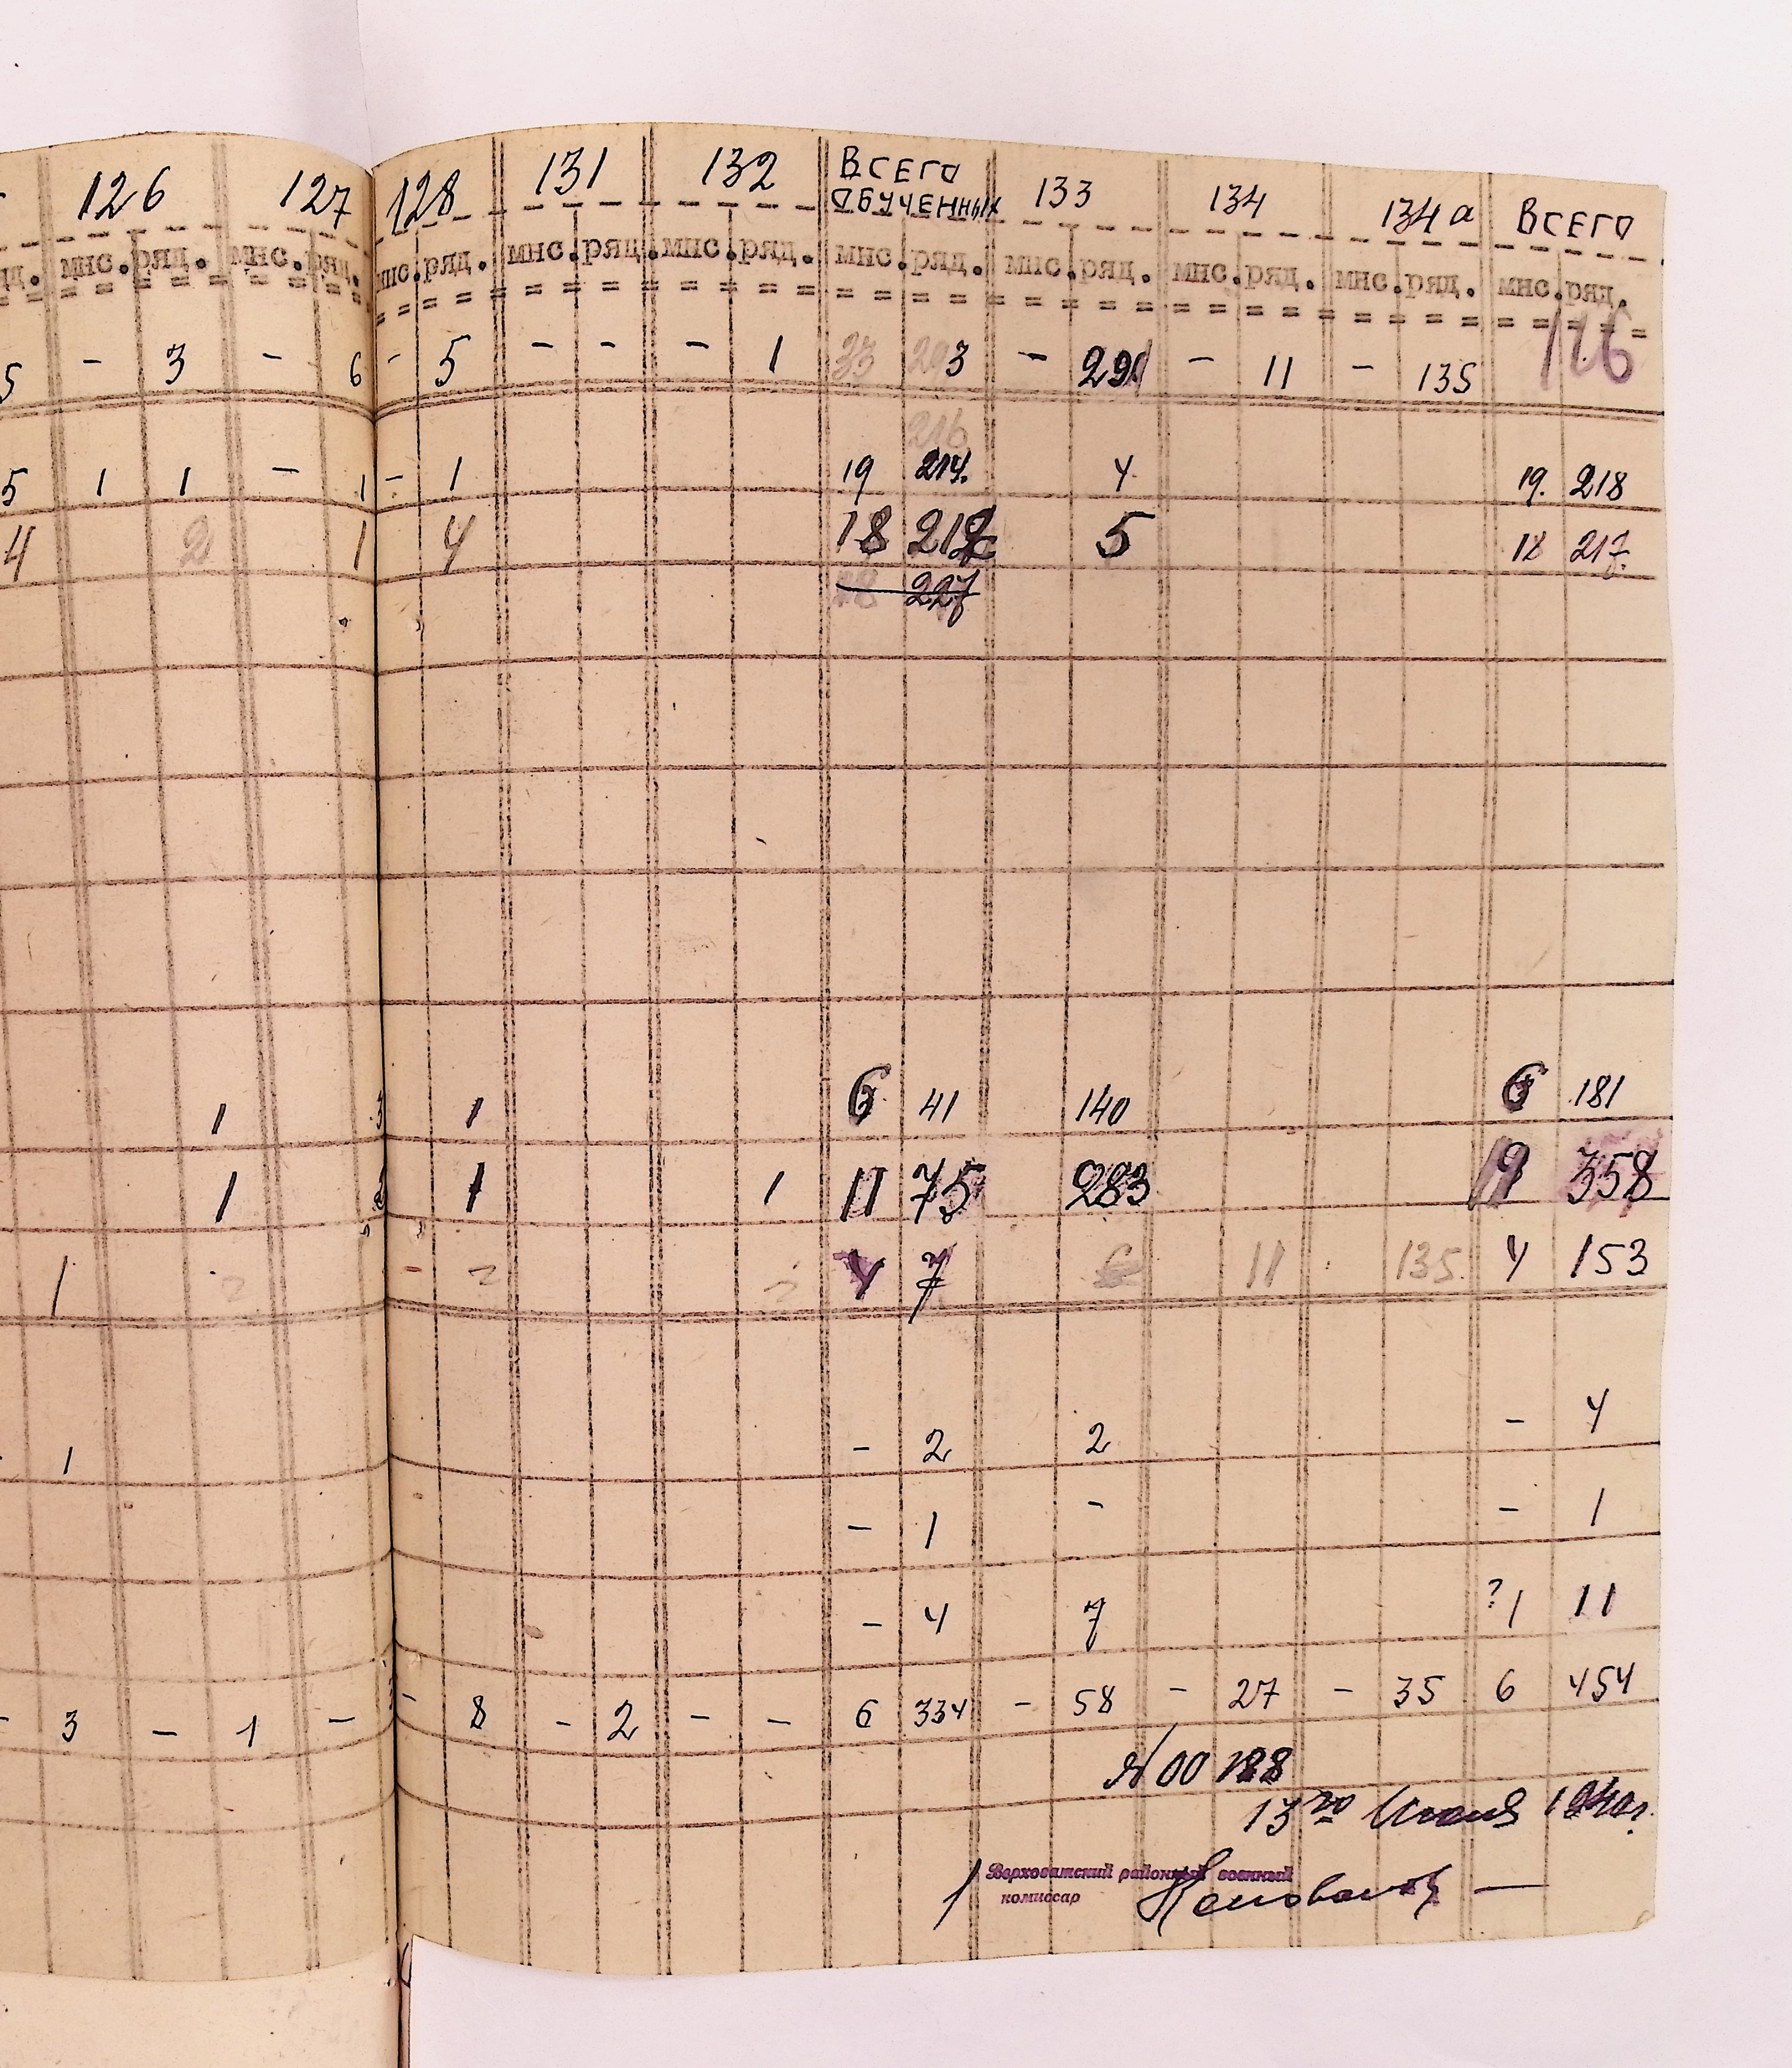 126 127 128 131 132 ВСЕГО ОБУЧЕННЫХ 133 134 134а ВСЕГО
яд. мнс. ряд. мнс. ряд. мнс. ряд. мнс. ряд. мнс. ряд. мнс. ряд. мнс. ряд. мнс. ряд. мнс. ряд. мнс. ряд.
116
5 - 3 - 6 - 5 - - - 1 33 203 - 291 - 11 - 135
216
5 1 1 - 1 - 1 19 214. 4 19. 218
4 2 1 4 18 212 5 18 217.
18 227
1 3 1 6 41 140 6 181
1 2 1 1 11 75 283 358
1 4 7 6 11 135. 4 153
- 4
1 - 2 2
- 1 - - 1
- 4 7 ? 1 11
- 3 - 1 - - 8 - 2 - - 6 334 - 58 - 27 - 35 6 454
№ 00188
13го Июня 1940г.
Верховатский районный военный
комиссар